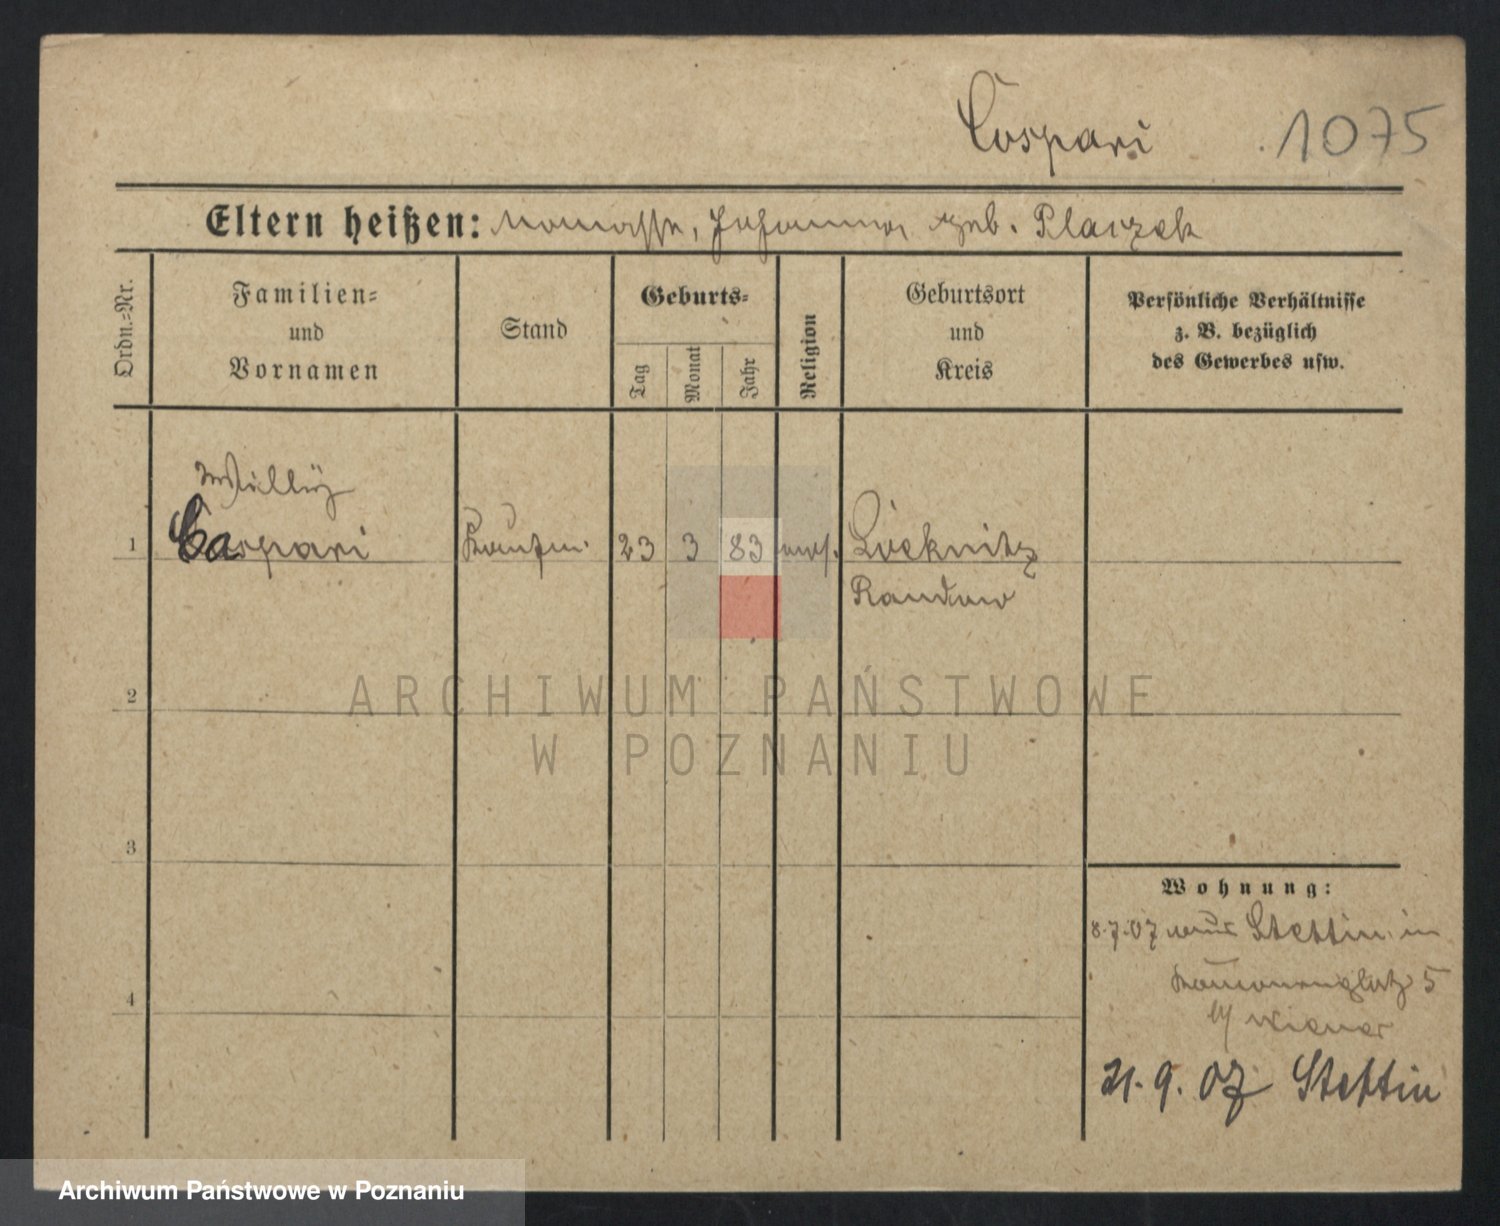 Caspari 1075
Eltern heißen: Manasse, Johanna, geb. Placzek
Ordn.-Nr.
Familien-
und
Vornamen
Stand
Geburts-
Tag
Monat
Jahr
Religion
Geburtsort
und
Kreis
Persönliche Verhältnisse
z. B. bezüglich
des Gewerbes usw.
Willy
1 Caspari Kaufm. 23 3 83 mos. Löcknitz
Randow
ARCHIWUM PAŃSTWOWE
2
W POZNANIU
3
Wohnung:
8.7.07 aus Stettin in
5
4
b/ Wiener
21.9.07 Stettin
Archiwum Państwowe w Poznaniu